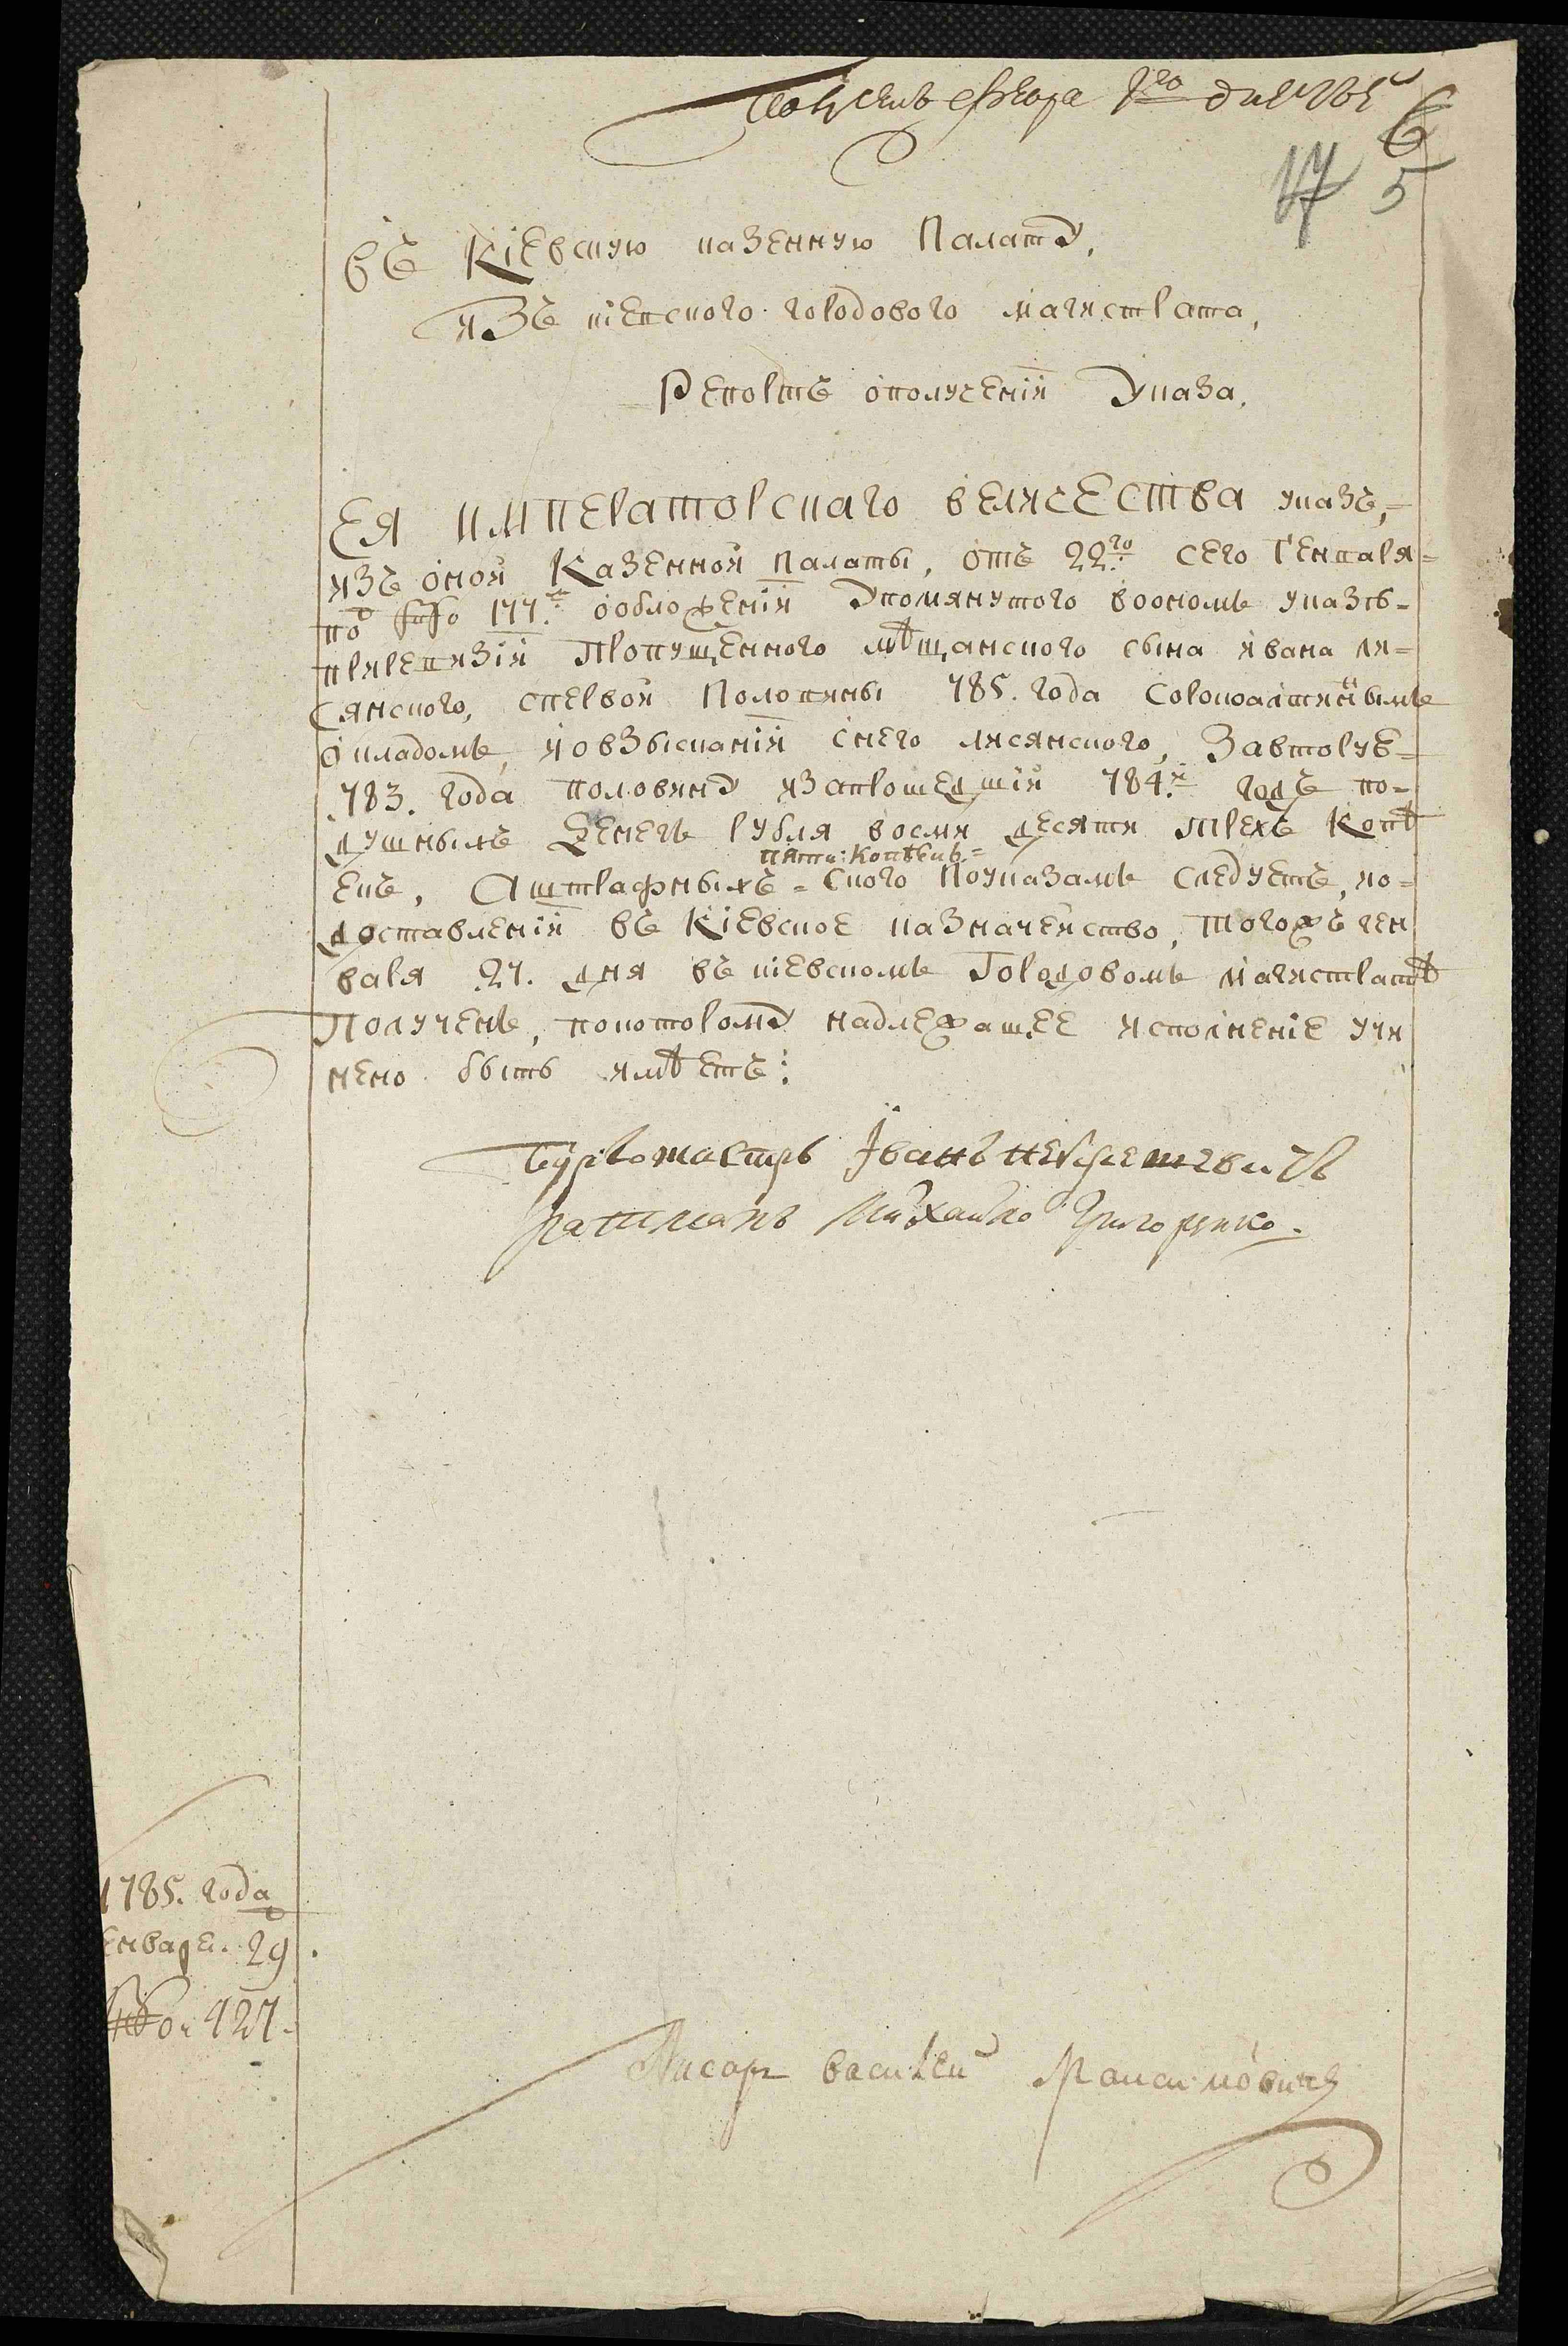 6
5
Въ Кіевскую казенную Палату,
изъ кіевского городового магистрата,
Репортъ ополученіи Указа,
Ея императорскаго величества указъ,
изъ оной Казенной палаты, отъ 22го сего Генваря
по 177. ообложеніи Упомянутого воономъ указѣ
приревизіи Пропущенного мѣщанского сына ивана ли=
сянского, спервой Половины 785. года Сорокоалтиннымъ
окладомъ, иовзысканіи снего лисянского, Завторую
783. года половину изапрошедшій 784й годъ по=
душныхъ Денегъ рубля восми десяти трехъ Копѣ
пяти: Копѣекъ=
екъ, Аштрафныхъ = сколко поуказамъ следуетъ, ио=
доставленіи въ Кіевское казначейство, того жъ ген
варя 27. дня въ кіевскомъ Городовомъ магистратѣ
Полученъ, покоторому надлежащее исполненіе учи
нено быть имѣетъ:
Бурмомастръ Іванъ
ратманъ Михайло Григоренко.
1785. года
енваря. 29.
427.
Писарь Василей Максимовичъ